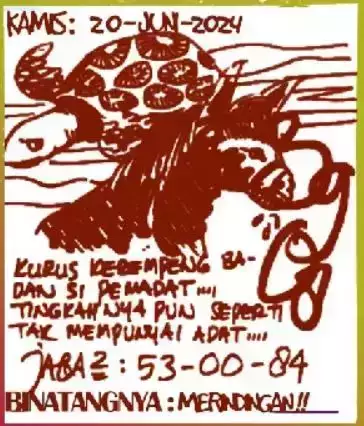 KAMIS: 20-JUN-2024
KURUS KEREMPENG BA-
DAN SI PEMADAT....
TINGKAHNYA PUN SEPERTI
TAK MEMPUNYAI ADAT....
JABA2 : 53-00-84
BINATANGNYA : MERINDINGAN!!